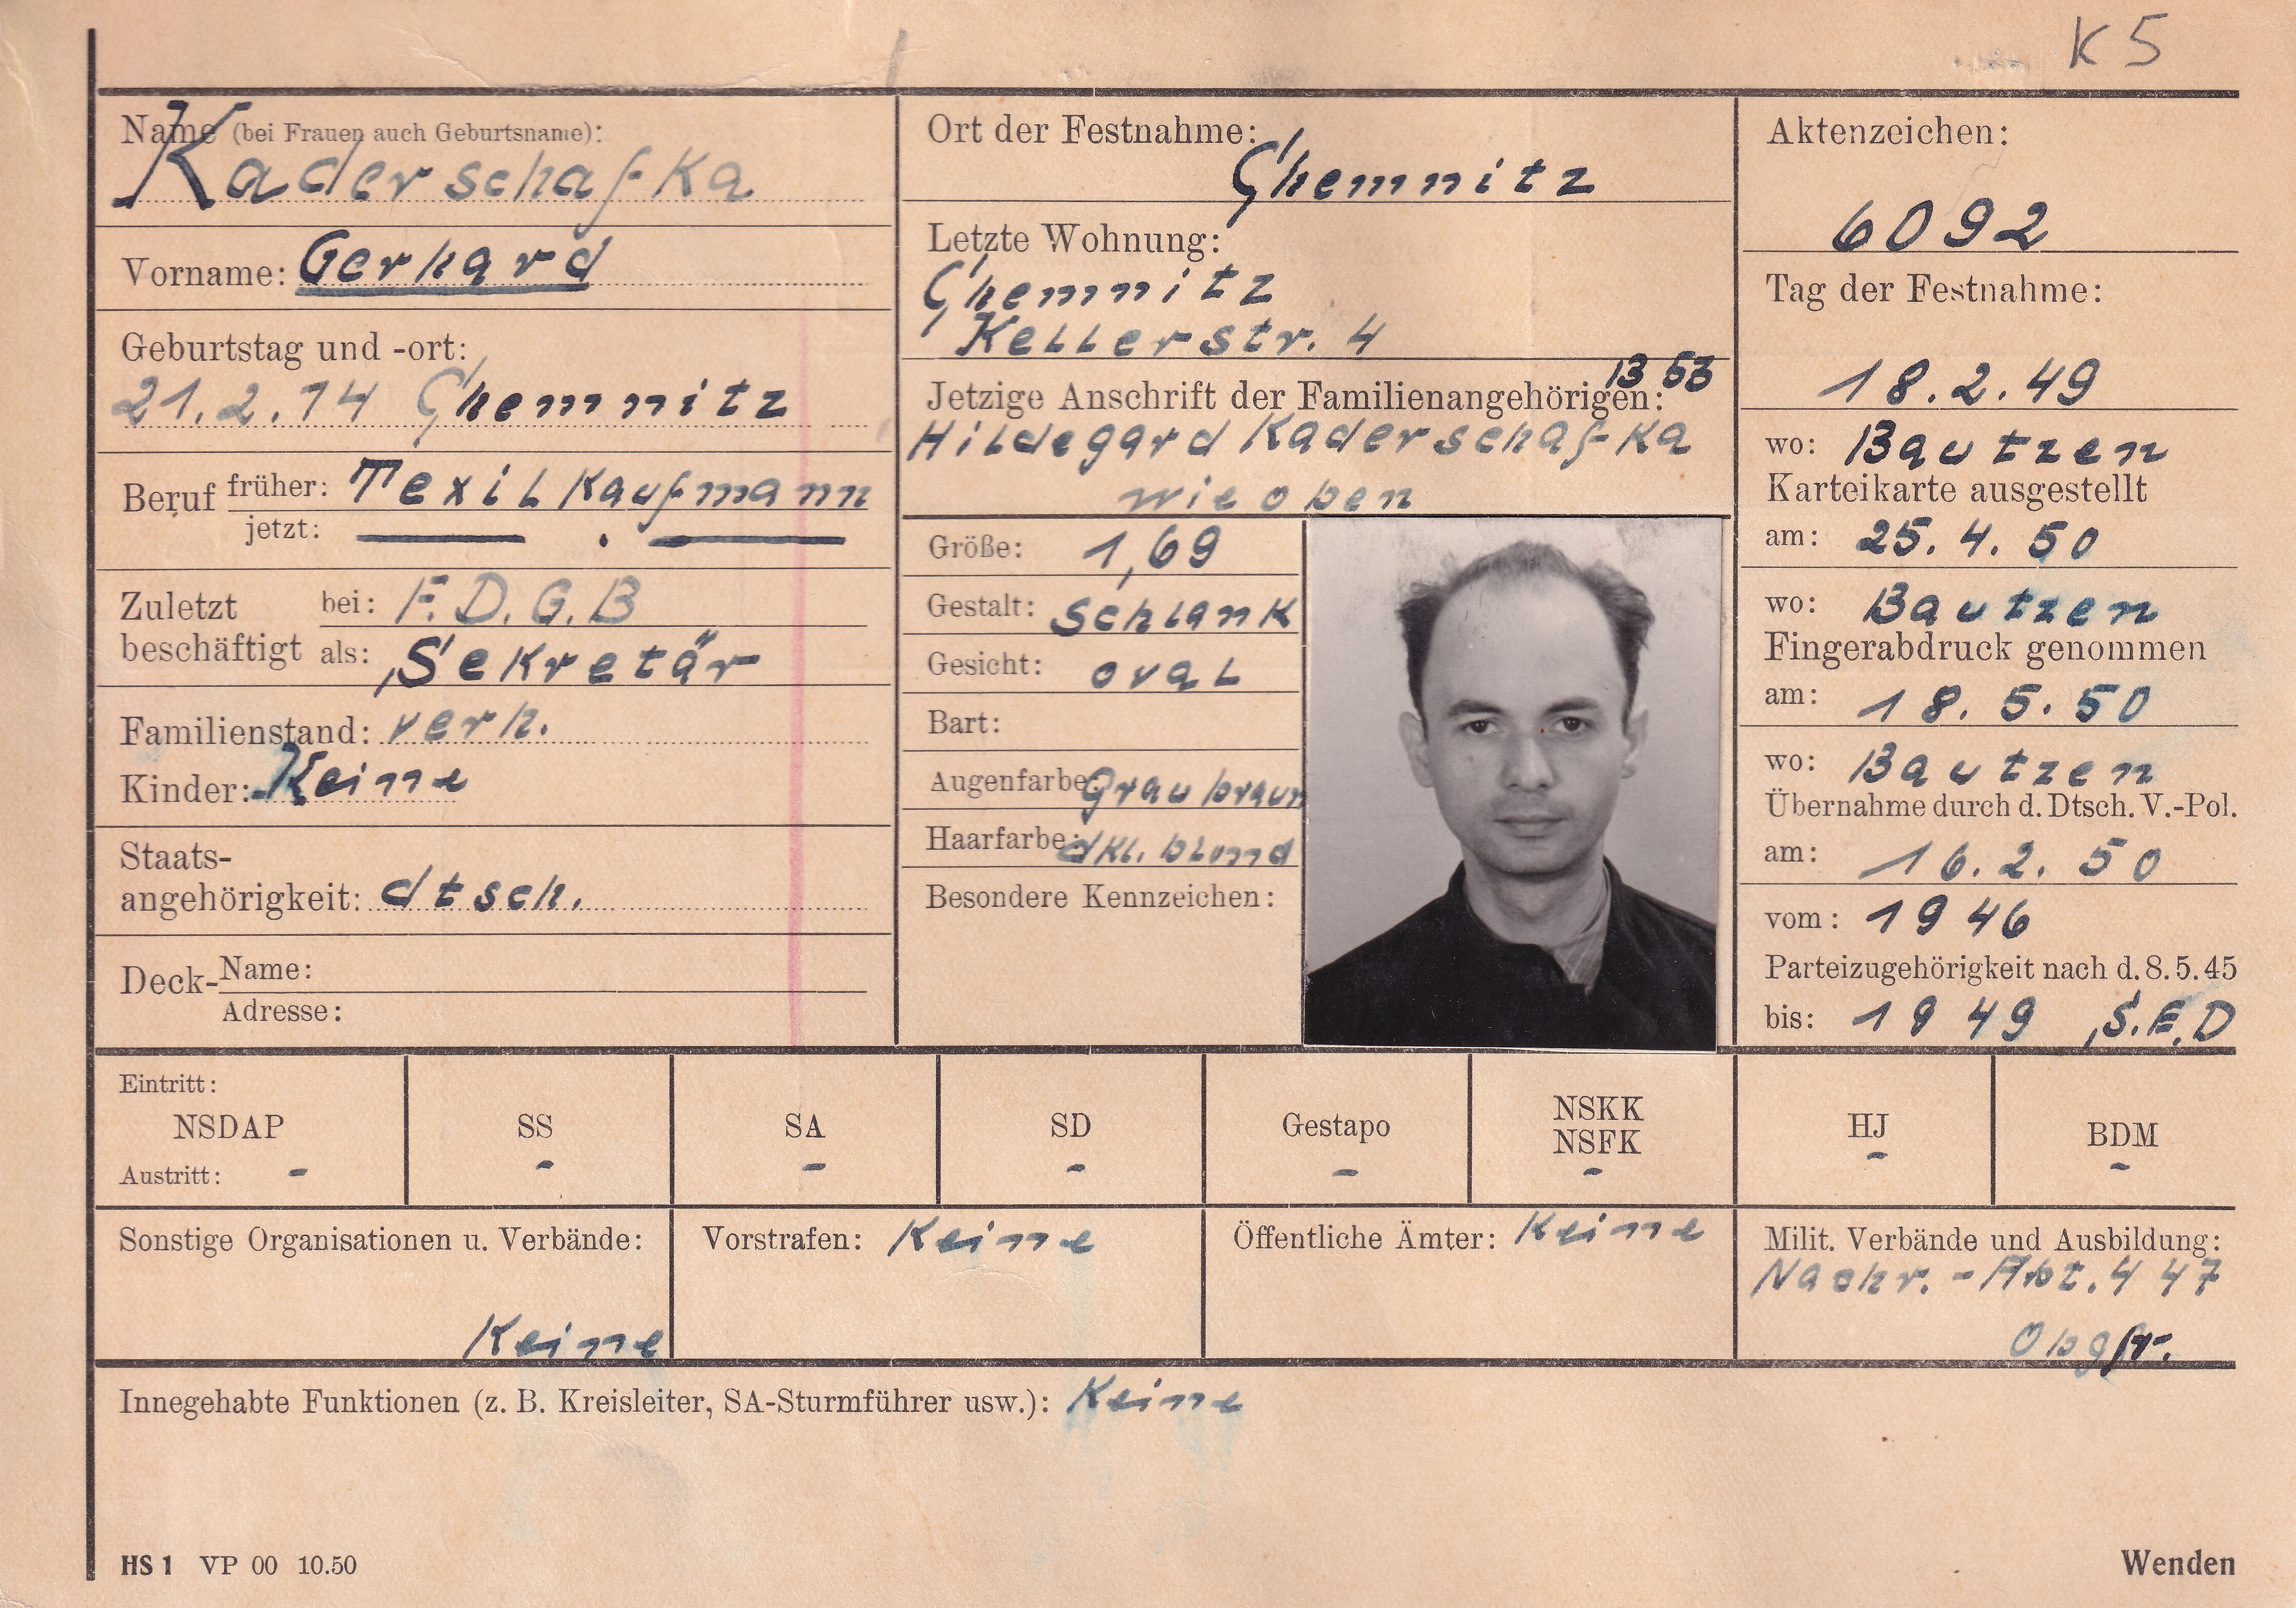 K 5
Name (bei Frauen auch Geburtsname):
Kaderschafka
Vorname: Gerhard
Geburtstag und -ort:
21.2.14 Chemnitz
Beruf früher: Texil Kaufmann
jetzt: — . —
Zuletzt beschäftigt bei: F.D.G.B
als: Sekretär
Familienstand: verh.
Kinder: Keine
Staats-
angehörigkeit: dtsch.
Deck- Name:
Adresse:
Ort der Festnahme:
Chemnitz
Letzte Wohnung:
Chemnitz
Kellerstr. 4
13 53
Jetzige Anschrift der Familienangehörigen:
Hildegard Kaderschafka
wie oben
Größe: 1,69
Gestalt: schlank
Gesicht: oval
Bart:
Augenfarbe: Graubraun
Haarfarbe: dkl. blond
Besondere Kennzeichen:
Aktenzeichen:
6092
Tag der Festnahme:
18.2.49
wo: Bautzen
Karteikarte ausgestellt
am: 25.4.50
wo: Bautzen
Fingerabdruck genommen
am: 18.5.50
wo: Bautzen
Übernahme durch d. Dtsch. V.-Pol.
am: 16.2.50
vom: 1946
Parteizugehörigkeit nach d. 8.5.45
bis: 1949 S.E.D
Eintritt:
NSDAP
Austritt: -
SS
-
SA
-
SD
-
Gestapo
-
NSKK
NSFK
-
HJ
-
BDM
-
Sonstige Organisationen u. Verbände:
Keine
Vorstrafen: Keine
Öffentliche Ämter: Keine
Milit. Verbände und Ausbildung:
Nachr.-Abt. 447
Obgfr.
Innegehabte Funktionen (z. B. Kreisleiter, SA-Sturmführer usw.): Keine
HS 1 VP 00 10.50
Wenden